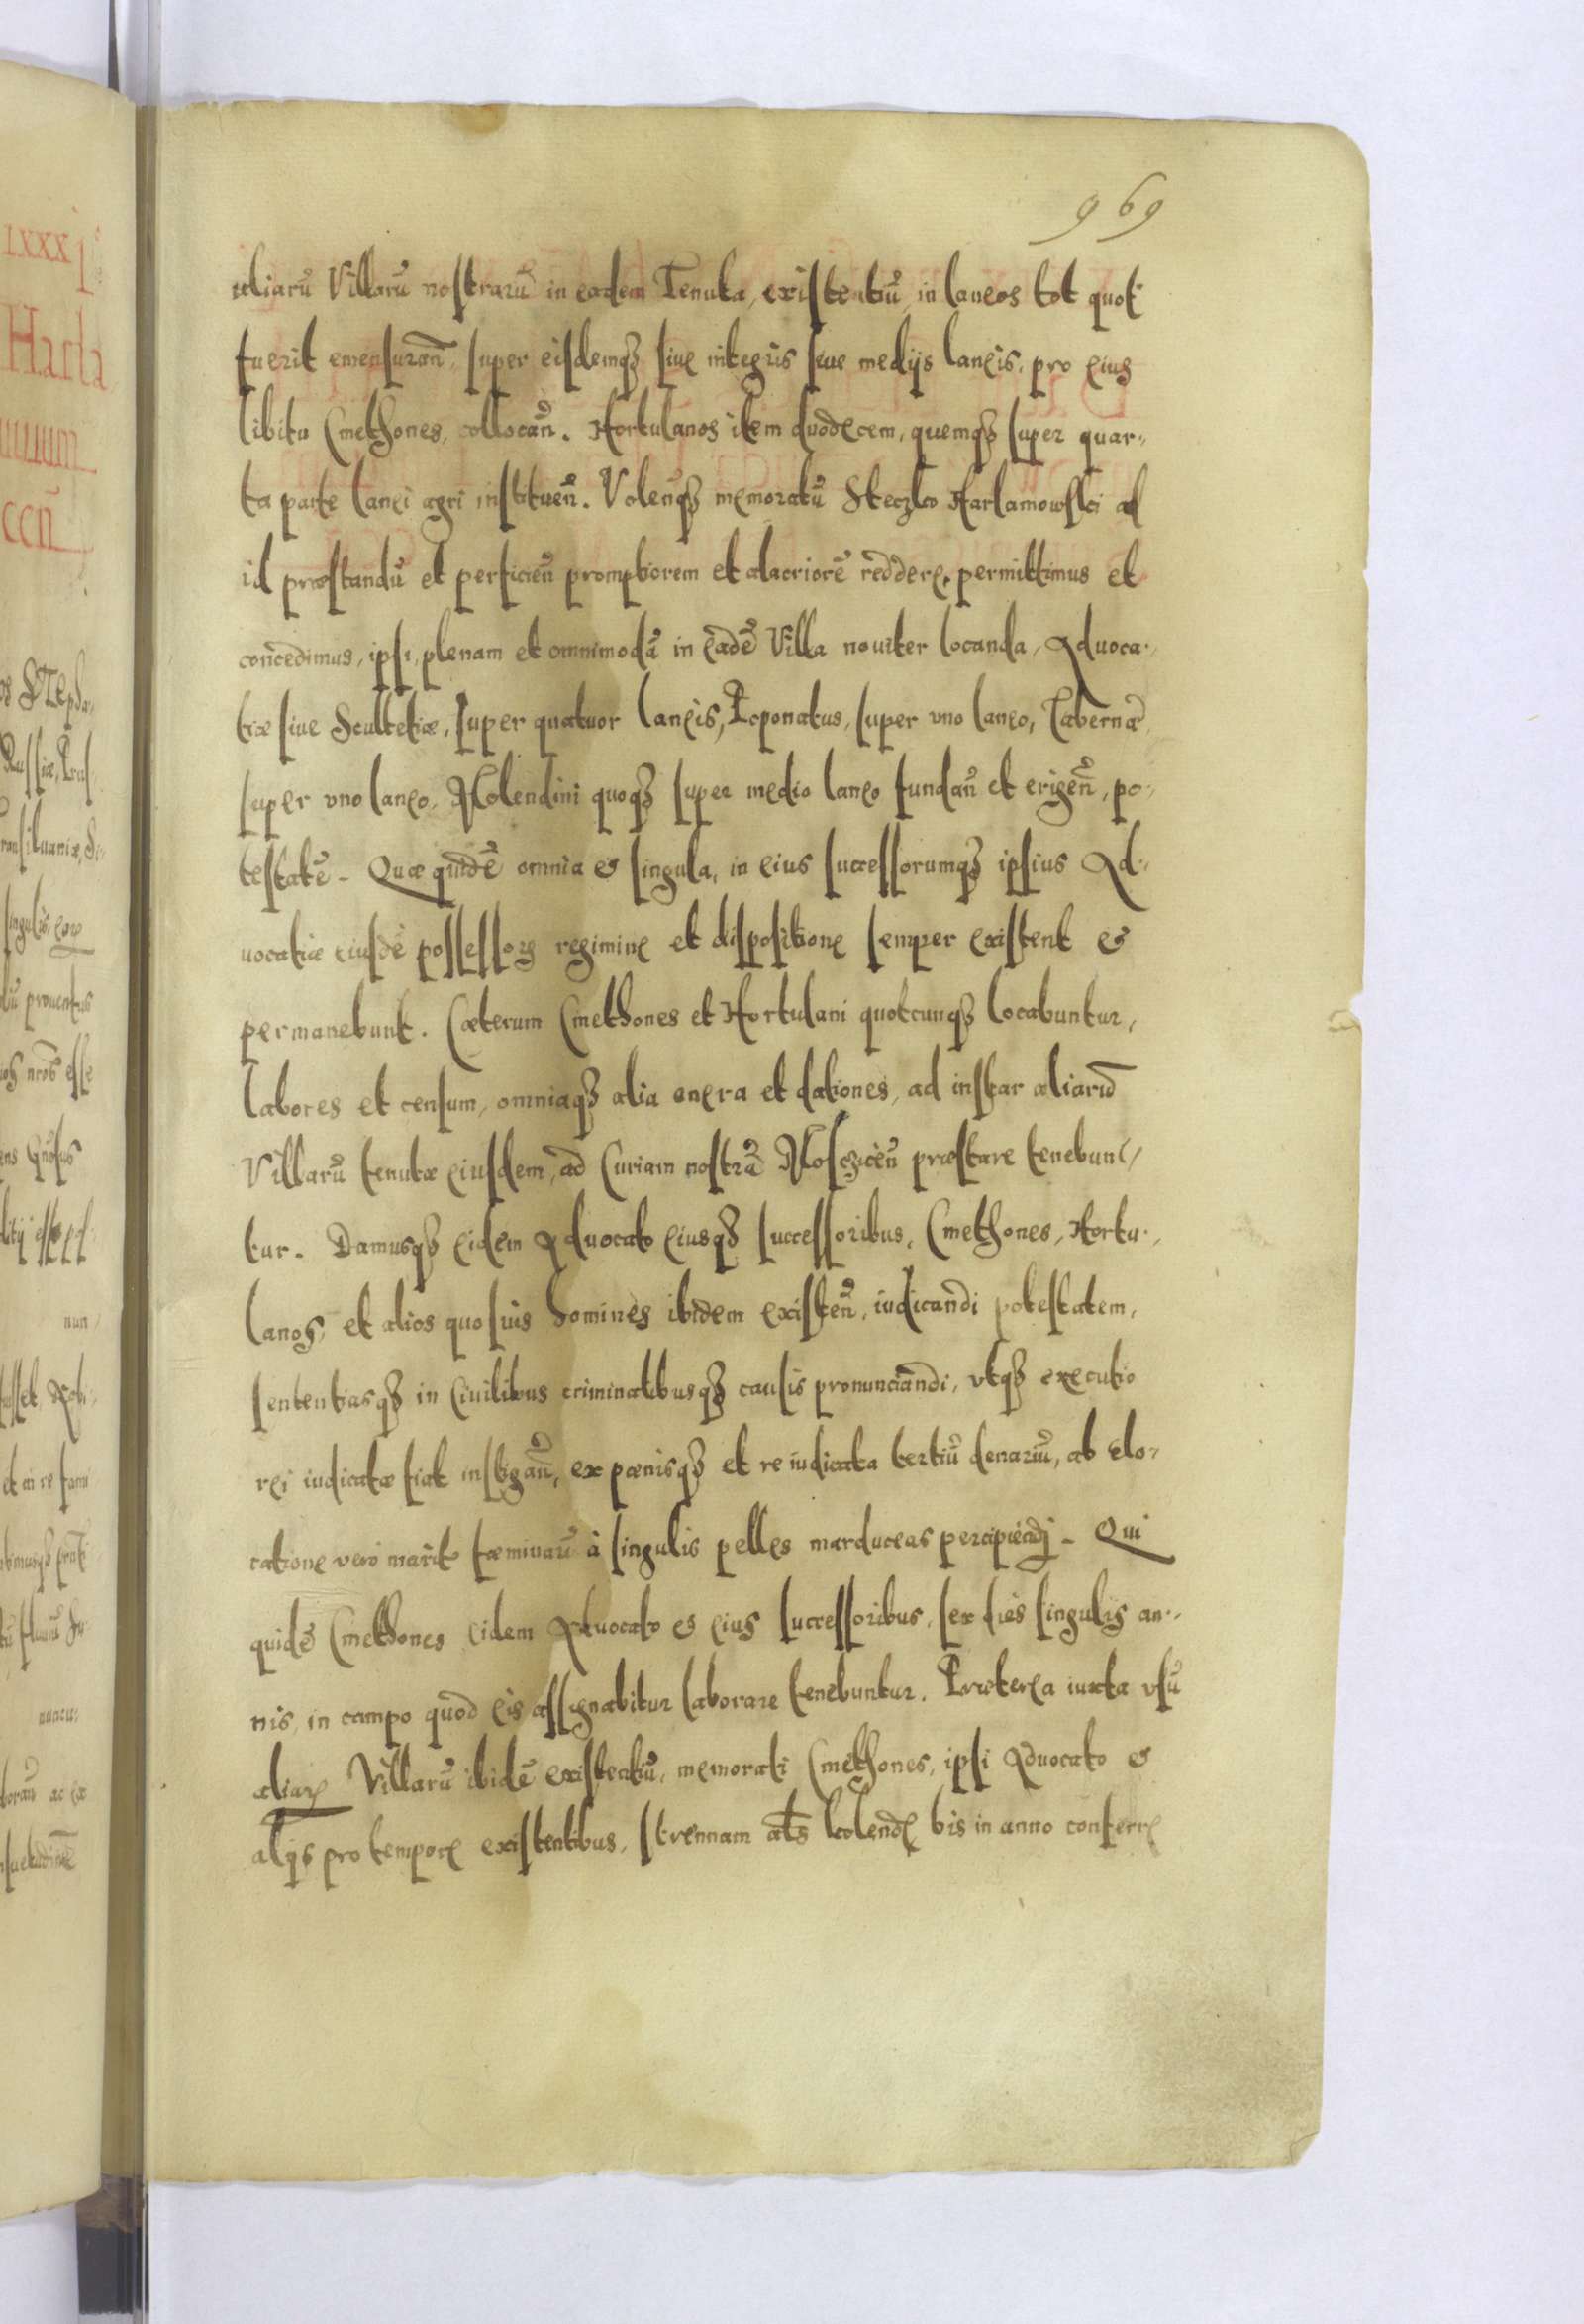 969
aliarū Villarū nostrarū in eadem Tenuta, existentiū, in laneos tot quot
fuerit emensurañ, super eisdemqȝ siue integris siue medijs laneis, pro eius
libitu Cmethones, collocañ. Hortulanos item duodecem, quemqȝ super quar-
ta parte lanei agri instituen̄. Volen̄qȝ memoratū Steczko Harlamowski ad
id præstandū et perficien̄ promptiorem et alacriorē reddere, permittimus et
concedimus, ipsi, plenam et omnimodā in eadē Villa nouiter locanda, Aduoca-
tiæ siue Scultetiæ, super quatuor laneis, Poponatus, super vno laneo, Tabernæ
super vno laneo, Molendini quoqȝ super medio laneo fundan̄ et erigen̄, po-
testatē. Quæ quidē omnia et singula, in eius successorumqȝ ipsius Ad-
uocatiæ eiusdē possessorꝝ regimine et dispositione semper existent et
permanebunt. Cæterum Cmethones et Hortulani quotcunqȝ locabuntur,
labores et censum, omniaqȝ alia onera et dationes, ad instar aliarū
Villarū tenutæ eiusdem, ad Curiam nostrā Mosczicen̄ præstare tenebun-
tur. Damusqȝ eidem Aduocato eiusqȝ successoribus, Cmethones, Hortu-
lanos, et alios quosuis homines ibidem existen̄, iudicandi potestatem,
sententiasqȝ in Ciuilibus criminalibusqȝ causis pronunciandi, vtqȝ executio
rei iudicatæ fiat instigan̄, ex pœnisqȝ et re iudicata tertiū denariū, ab elo-
catione vero marito fœminarū à singulis pelles marduceas percipiendi. Qui
quidē Cmethones eidem Aduocato et eius successoribus, sex dies singulis an-
nis, in campo quod eis assignabitur laborare tenebuntur. Præterea iuxta vsū
aliarꝝ Villarū ibidē existentiū, memorati Cmethones, ipsi Aduocato et
alijs pro tempore existentibus, strennam als kolendę bis in anno conferre